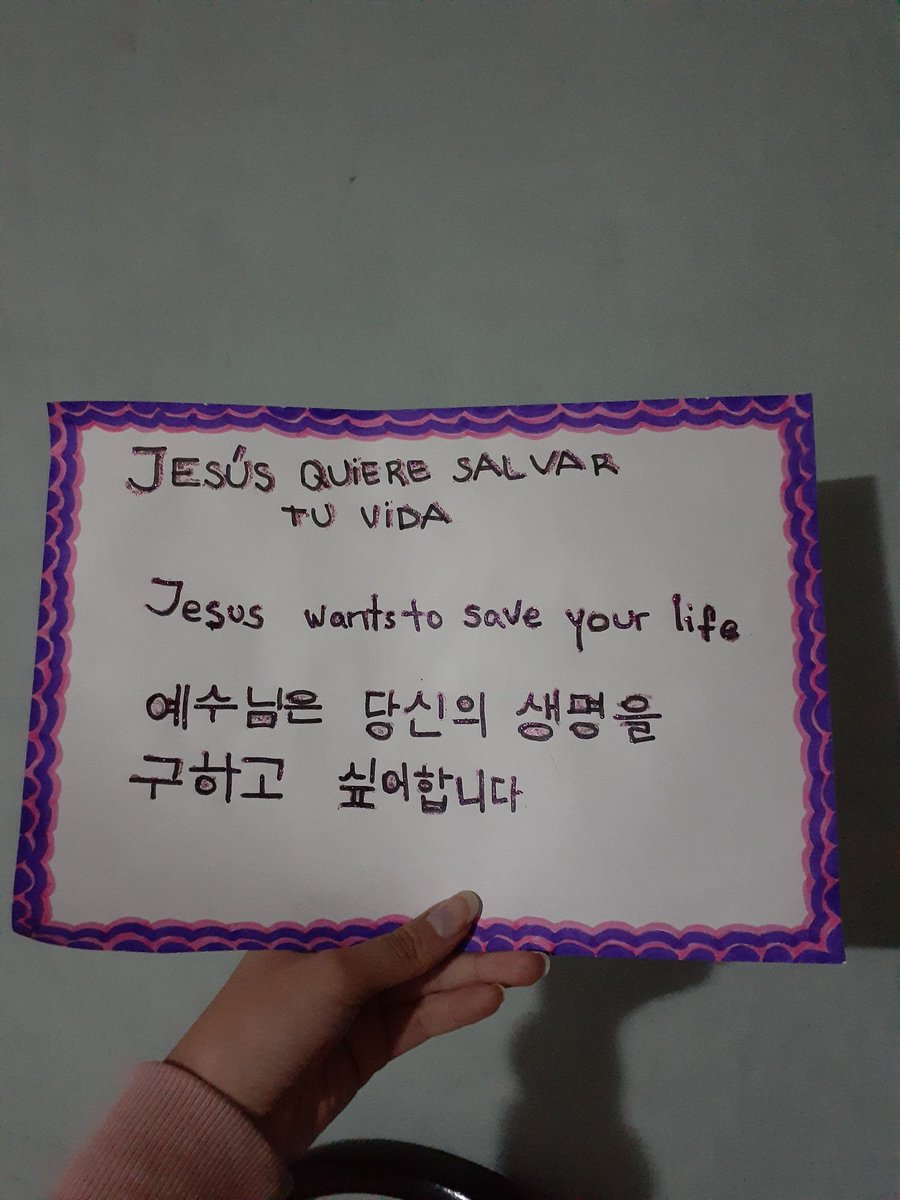 JESÚS QUIERE SALVAR
TU VIDA
Jesus wants to save your life
예수님은 당신의 생명을
구하고 싶어합니다